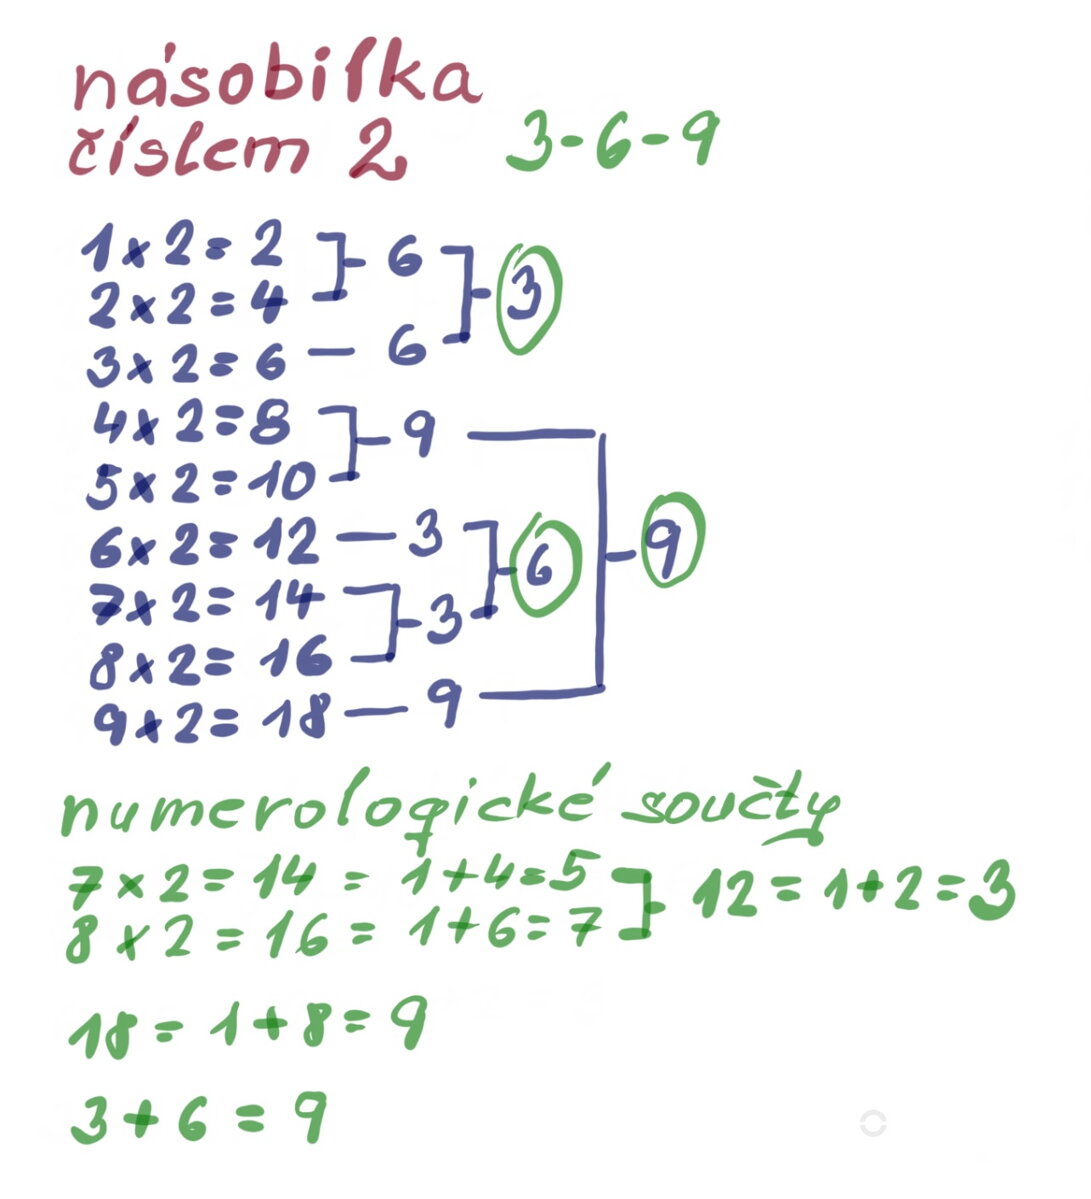 násobilka
číslem 2 3-6-9
1x2=2 6
2x2=4 3
3x2=6 — 6
4x2=8 9
5x2=10
6x2=12 — 3 9
7x2=14 6
8x2=16 3
9x2=18 — 9
numerologické součty
7x2=14=1+4=5 12=1+2=3
8x2=16=1+6=7
18=1+8=9
3+6=9